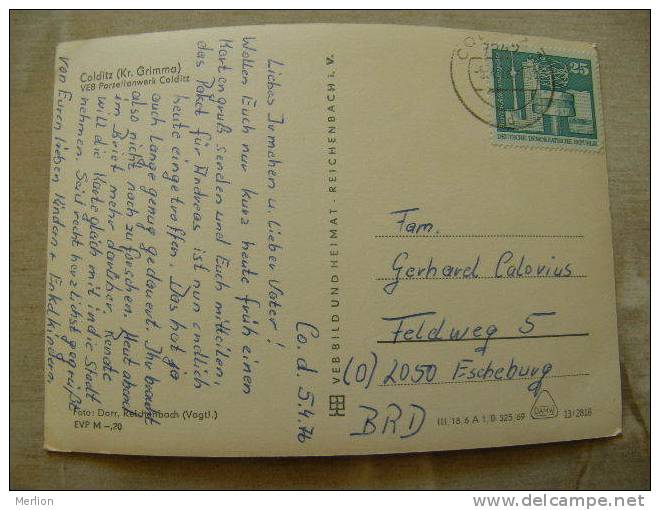 Colditz (Kr. Grimma)
VEB Porzellanwerk Colditz
Co.d 5.4.76
Liebes Irmchen u. Lieber Vater!
Wollen Euch nur kurz heute früh einen
Kartengruß senden und Euch mitteilen,
das Paket für Andreas ist nun endlich
heute eingetroffen. Das hat ja
auch lange genug gedauert. Ihr braucht
also nicht nach zu forschen. Heut abend
im Brief mehr darüber, Renate
will die Karte gleich mit in die Stadt
nehmen. Seid recht herzlichst gegrüßt
von Euren lieben Kindern + Enkelkindern
Foto: Darr, Reichenbach (Vogtl.)
EVP M -,20
VEB BILD UND HEIMAT · REICHENBACH i. V.
25
DEUTSCHE DEMOKRATISCHE REPUBLIK
Fam.
Gerhard Calovius
Feldweg 5
(0) 2050 Escheburg
BRD
III 18 6 A 1, B 525 69
DAMW
13/2818
Merlion
www.delcampe.net